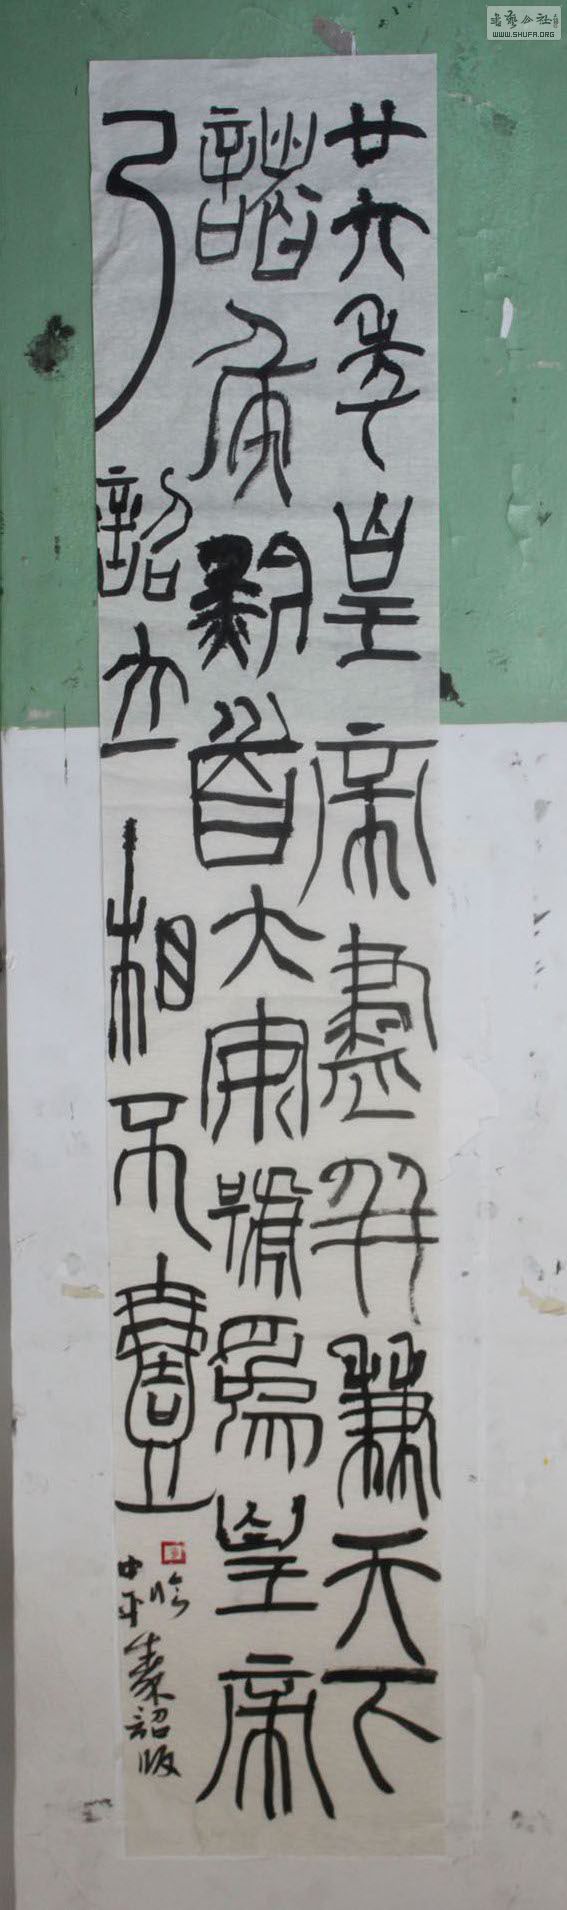 廿六年皇帝盡并兼天下
諸侯黔首大安號為皇帝
乃詔立相不壹
臨秦詔版
中平
书藝公社
WWW.SHUFA.ORG